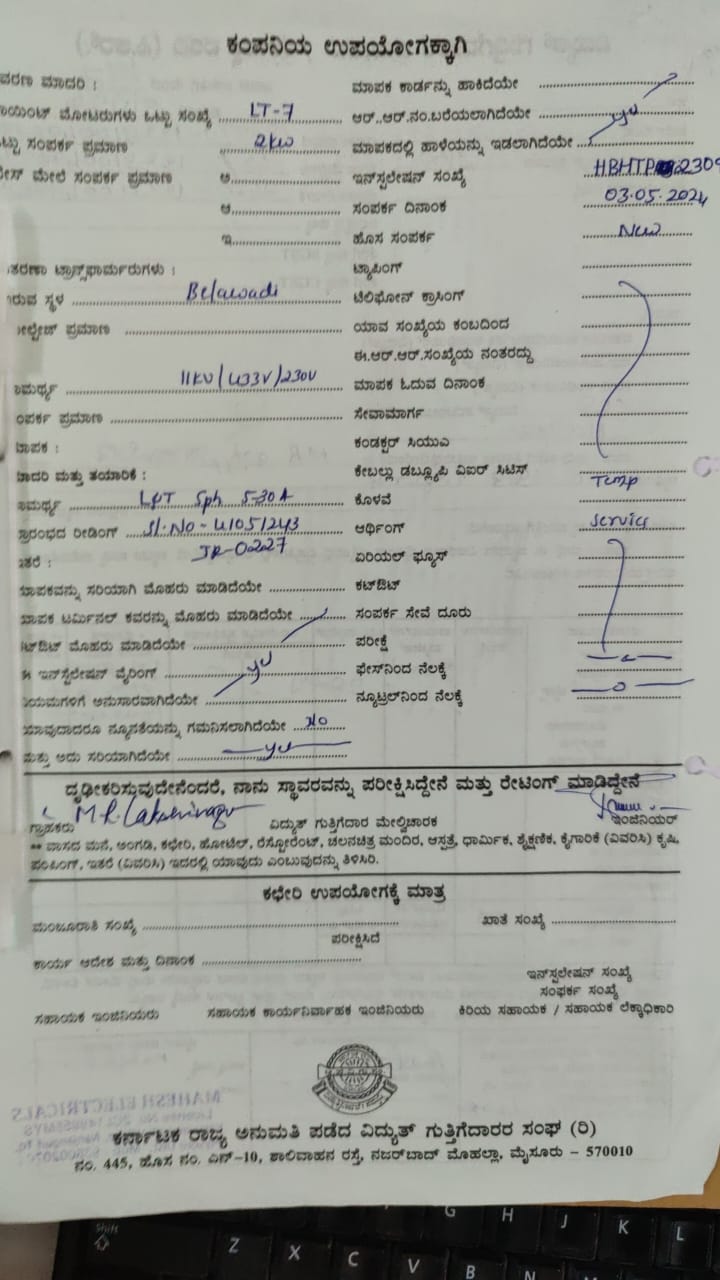 ಕಂಪನಿಯ ಉಪಯೋಗಕ್ಕಾಗಿ
ವರಣ ಮಾದರಿ : ಮಾಪಕ ಕಾರ್ಡನ್ನು ಹಾಕಿದೆಯೇ
ಾಯಿಂಟ್ ಮೋಟರುಗಳು ಒಟ್ಟು ಸಂಖ್ಯೆ LT-7 ಆರ್..ಆರ್.ನಂ.ಬರೆಯಲಾಗಿದೆಯೇ
ಟ್ಟು ಸಂಪರ್ಕ ಪ್ರಮಾಣ 2kw ಮಾಪಕದಲ್ಲಿ ಹಾಳೆಯನ್ನು ಇಡಲಾಗಿದೆಯೇ yes
ೇಸ್ ಮೇಲೆ ಸಂಪರ್ಕ ಪ್ರಮಾಣ ಅ ಇನ್‌ಸ್ಟಲೇಷನ್ ಸಂಖ್ಯೆ HBHTP 2309
ಆ ಸಂಪರ್ಕ ದಿನಾಂಕ 03.05.2024
ಇ ಹೊಸ ಸಂಪರ್ಕ New
ತರಣಾ ಟ್ರಾನ್ಸ್‌ಫಾರ್ಮರುಗಳು : ಟ್ಯಾಪಿಂಗ್
ರುವ ಸ್ಥಳ Belawadi ಟೆಲಿಫೋನ್ ಕ್ರಾಸಿಂಗ್
ೋಲ್ಟೇಜ್ ಪ್ರಮಾಣ ಯಾವ ಸಂಖ್ಯೆಯ ಕಂಬದಿಂದ
ಈ.ಆರ್.ಆರ್.ಸಂಖ್ಯೆಯ ನಂತರದ್ದು
ಾಮರ್ಥ್ಯ 11KV/433V/230V ಮಾಪಕ ಓದುವ ದಿನಾಂಕ
ಂಪರ್ಕ ಪ್ರಮಾಣ ಸೇವಾಮಾರ್ಗ
ಾಪಕ : ಕಂಡಕ್ಟರ್ ಸಿಯುಎ
ಾದರಿ ಮತ್ತು ತಯಾರಿಕೆ : ಕೇಬಲ್ಲು ಡಬ್ಲ್ಯೂಪಿ ವಿಐರ್ ಸಿಟಿಸ್ Temp
ಾಮರ್ಥ್ಯ L&T Sph 5-30A ಕೊಳವೆ
ಪ್ರಾರಂಭದ ರೀಡಿಂಗ್ Sl.No-41051243 ಆರ್ಥಿಂಗ್ service
ಇತರೆ : IR-0227 ಏರಿಯಲ್ ಫ್ಯೂಸ್
ಮಾಪಕವನ್ನು ಸರಿಯಾಗಿ ಮೊಹರು ಮಾಡಿದೆಯೇ ಕಟ್‌ಔಟ್
ಮಾಪಕ ಟರ್ಮಿನಲ್ ಕವರನ್ನು ಮೊಹರು ಮಾಡಿದೆಯೇ ಸಂಪರ್ಕ ಸೇವೆ ದೂರು
ಕಟ್‌ಔಟ್ ಮೊಹರು ಮಾಡಿದೆಯೇ ಪರೀಕ್ಷೆ
ಈ ಇನ್‌ಸ್ಟಲೇಷನ್ ವೈರಿಂಗ್ yes ಫೇಸ್‌ನಿಂದ ನೆಲಕ್ಕೆ
ನಿಯಮಗಳಿಗೆ ಅನುಸಾರವಾಗಿದೆಯೇ ನ್ಯೂಟ್ರಲ್‌ನಿಂದ ನೆಲಕ್ಕೆ — 0 —
ಯಾವುದಾದರೂ ನ್ಯೂನತೆಯನ್ನು ಗಮನಿಸಲಾಗಿದೆಯೇ No
ಮತ್ತು ಅದು ಸರಿಯಾಗಿದೆಯೇ yes
ದೃಢೀಕರಿಸುವುದೇನೆಂದರೆ, ನಾನು ಸ್ಥಾವರವನ್ನು ಪರೀಕ್ಷಿಸಿದ್ದೇನೆ ಮತ್ತು ರೇಟಿಂಗ್ ಮಾಡಿದ್ದೇನೆ
ಗ್ರಾಹಕರು ವಿದ್ಯುತ್ ಗುತ್ತಿಗೆದಾರ ಮೇಲ್ವಿಚಾರಕ ಇಂಜಿನಿಯರ್
** ವಾಸದ ಮನೆ, ಅಂಗಡಿ, ಕಛೇರಿ, ಹೋಟೆಲ್, ರೆಸ್ಟೋರೆಂಟ್, ಚಲನಚಿತ್ರ ಮಂದಿರ, ಆಸ್ಪತ್ರೆ, ಧಾರ್ಮಿಕ, ಶೈಕ್ಷಣಿಕ, ಕೈಗಾರಿಕೆ (ವಿವರಿಸಿ) ಕೃಷಿ,
ಪಂಪಿಂಗ್, ಇತರೆ (ವಿವರಿಸಿ) ಇದರಲ್ಲಿ ಯಾವುದು ಎಂಬುವುದನ್ನು ತಿಳಿಸಿರಿ.
ಕಛೇರಿ ಉಪಯೋಗಕ್ಕೆ ಮಾತ್ರ
ಮಂಜೂರಾತಿ ಸಂಖ್ಯೆ ಖಾತೆ ಸಂಖ್ಯೆ
ಪರೀಕ್ಷಿಸಿದೆ
ಕಾರ್ಯ ಆದೇಶ ಮತ್ತು ದಿನಾಂಕ
ಇನ್‌ಸ್ಟಲೇಷನ್ ಸಂಖ್ಯೆ
ಸಂಪರ್ಕ ಸಂಖ್ಯೆ
ಸಹಾಯಕ ಇಂಜಿನಿಯರು ಸಹಾಯಕ ಕಾರ್ಯನಿರ್ವಾಹಕ ಇಂಜಿನಿಯರು ಕಿರಿಯ ಸಹಾಯಕ / ಸಹಾಯಕ ಲೆಕ್ಕಾಧಿಕಾರಿ
MAHESH ELECTRICALS
ಕರ್ನಾಟಕ ರಾಜ್ಯ ಅನುಮತಿ ಪಡೆದ ವಿದ್ಯುತ್ ಗುತ್ತಿಗೆದಾರರ ಸಂಘ (ರಿ)
ನಂ. 445, ಹೊಸ ನಂ. ಎನ್-10, ಶಾಲಿವಾಹನ ರಸ್ತೆ, ನಜರ್‌ಬಾದ್ ಮೊಹಲ್ಲಾ, ಮೈಸೂರು – 570010
Shift G H J K L
Z X C V B N